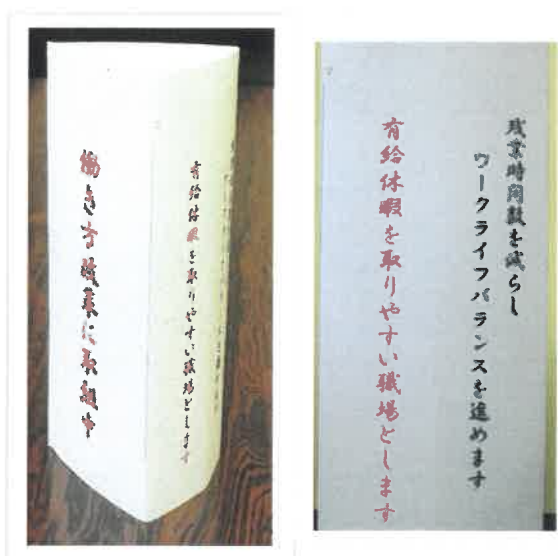 有給休暇を取りやすい職場とします
働き方改革に取組中
残業時間数を減らし
ワークライフバランスを進めます
有給休暇を取りやすい職場とします